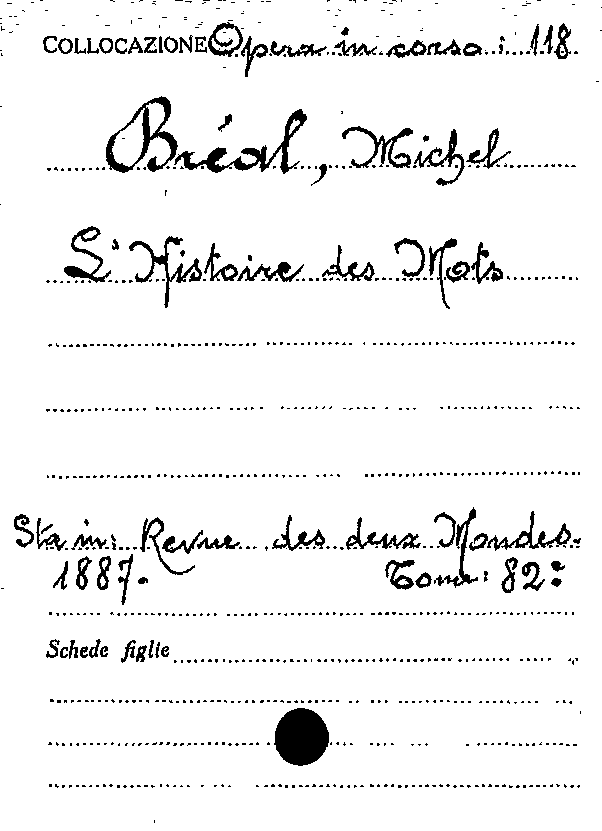 COLLOCAZIONE Opera in corso: 118
Bréal, Michel
L'Histoire des Mots
Sta in: Revue des deux Mondes.
1887. Tome: 82:
Schede figlie